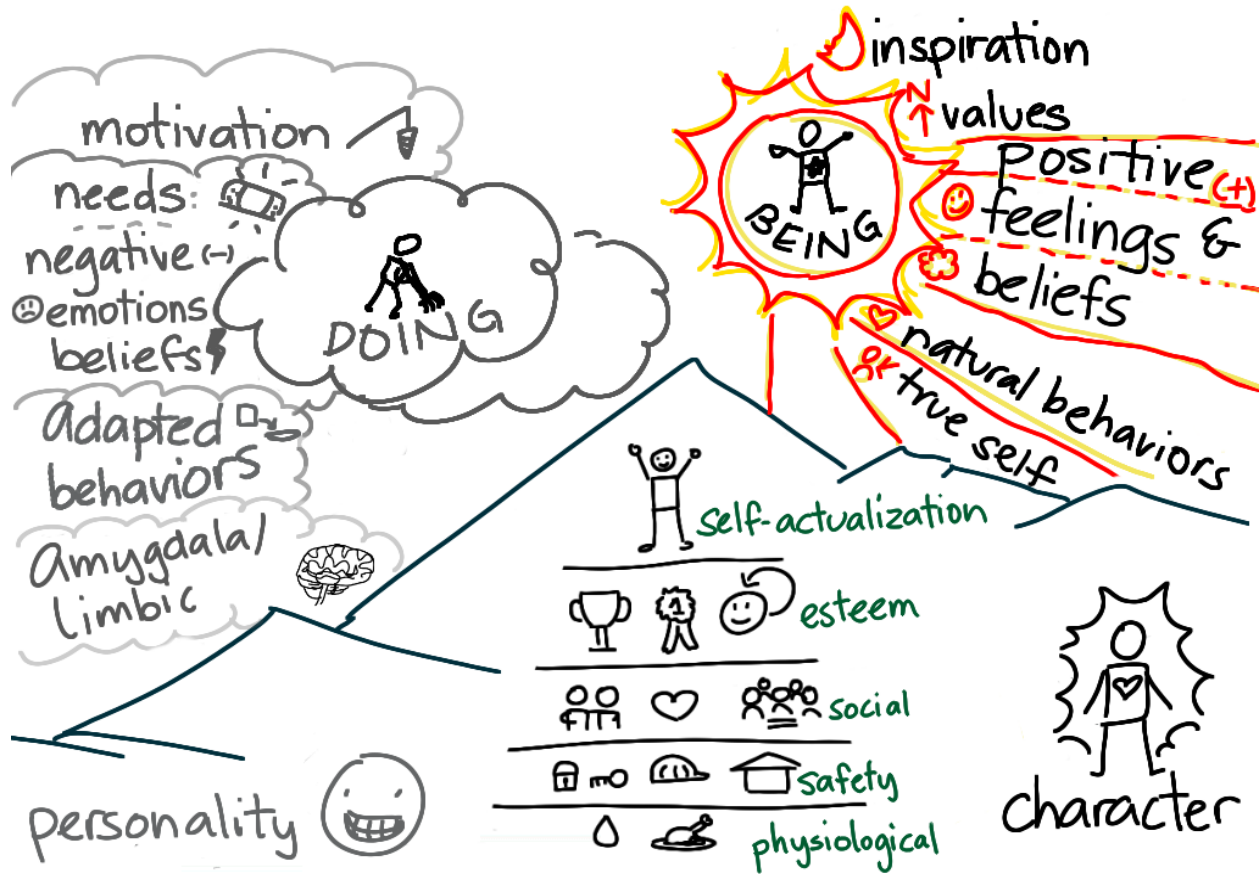 motivation
needs:
negative (-)
emotions
beliefs
adapted
behaviors
amygdala/
limbic
DOING
personality
inspiration
N
values
positive (+)
feelings &
beliefs
natural behaviors
true self
BEING
self-actualization
1
esteem
social
safety
physiological
character